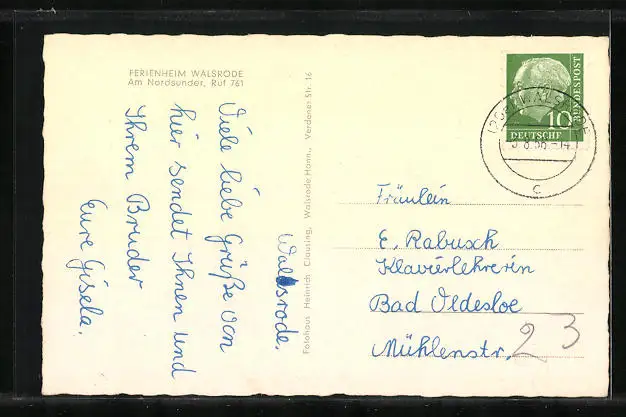 FERIENHEIM WALSRODE
Am Nordsunder, Ruf 761
Walsrode.
Viele liebe Grüße von
hier sendet Ihnen und
Ihrem Bruder
Eure Gisela.
Fotohaus Heinrich Clausing, Walsrode Hann., Verdener Str. 16
DEUTSCHE
BUNDESPOST
10
WALSRODE
c
Fräulein
E. Rabusch
Klavierlehrerin
Bad Oldesloe
Mühlenstr. 23